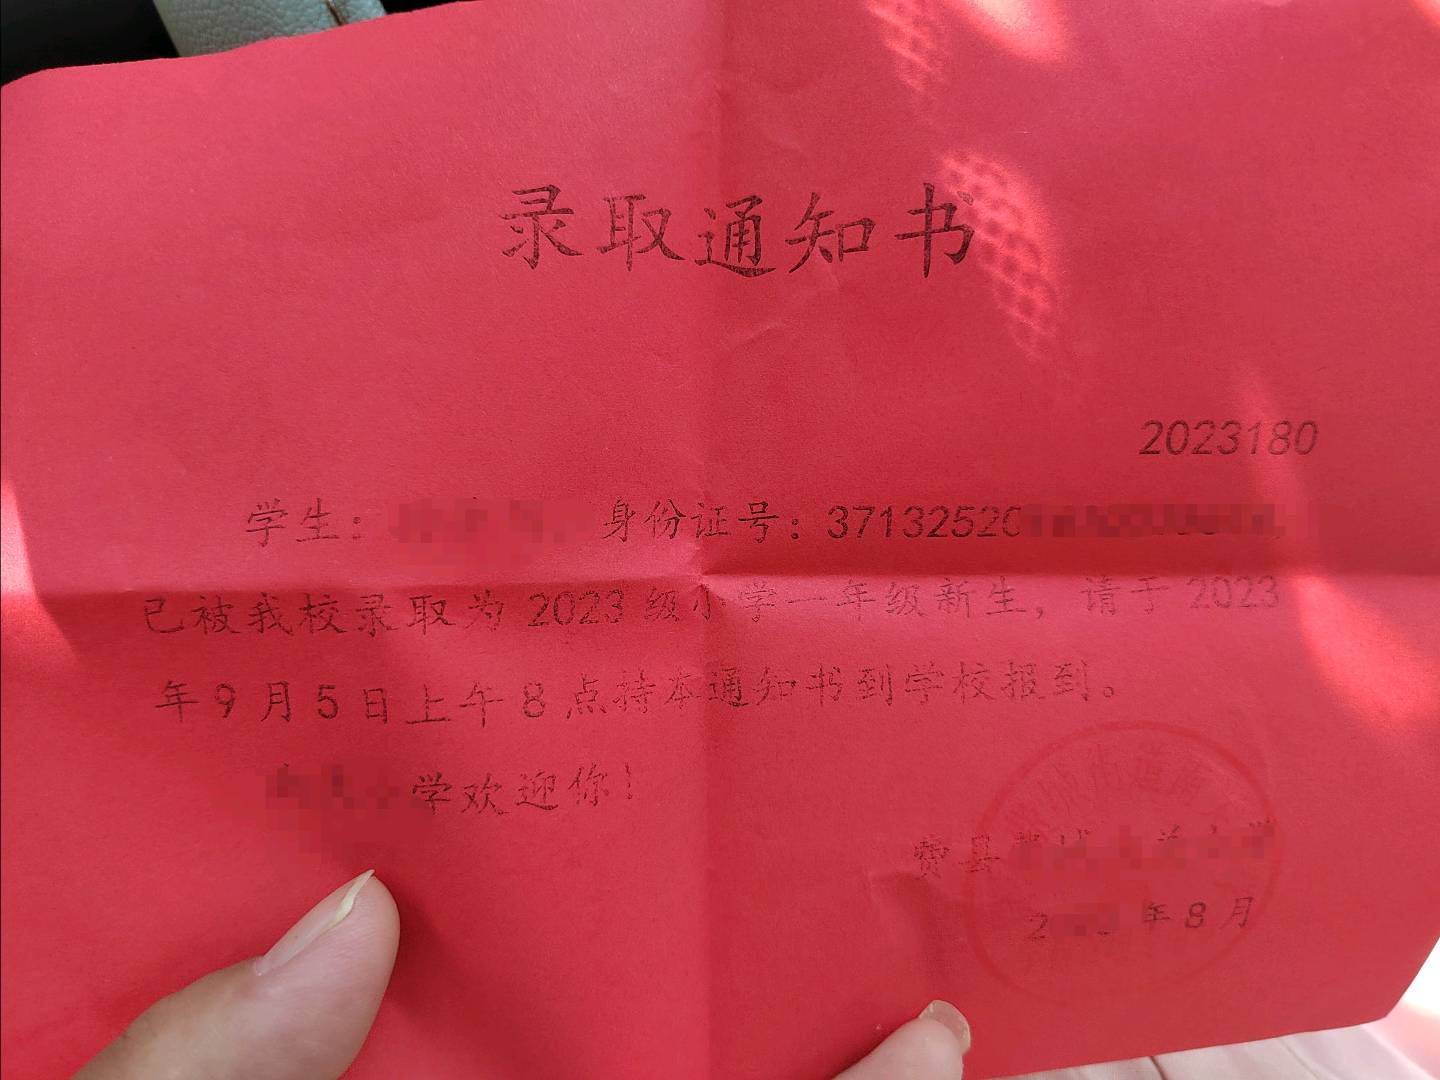 录取通知书
2023180
学生： 身份证号：37132520
已被我校录取为 2023 级小学一年级新生，请于 2023
年 9 月 5 日上午 8 点持本通知书到学校报到。
学欢迎你！
费县
年 8 月